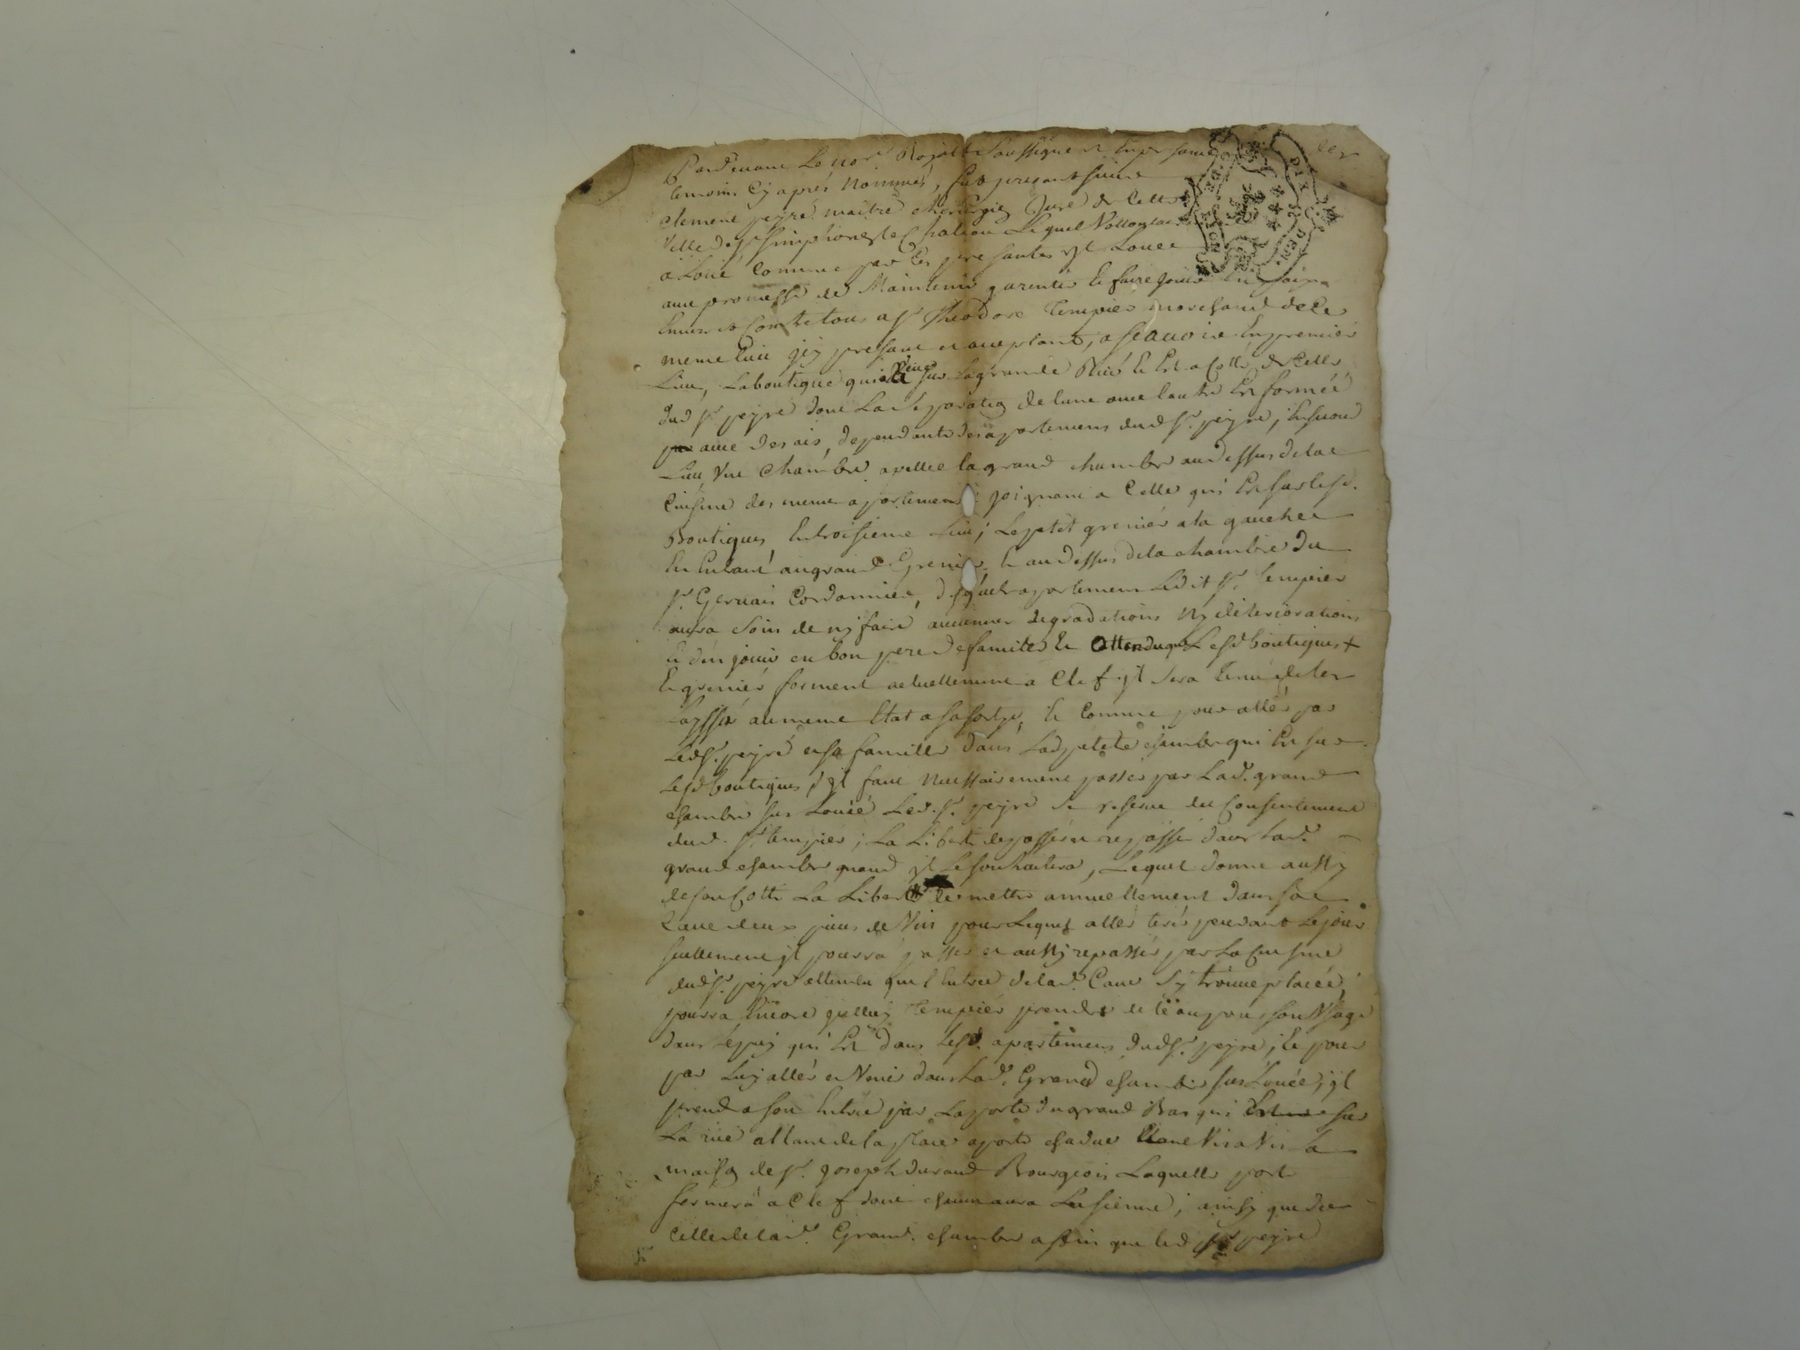 Pardevant Le nore Royal Soussigné et en presance
temoins Cy après Nommés, fut present sieur
Clement peyre maitre chirurgien Juré de Cette
Ville de St Simphorien le Chateau Lequel Vollontairement
a Loué Comme par les presantes yl Loue
avec promesse de Maintenir garentir le faire jouir
Envers et Contre tous a Sr Theodore Tempier marchand de Ce
meme Lieu jcy presant et aceptant, a scavoir En premier
Lieu, La boutique qui a Veüe sur la grande Rüe et Est a Cotté de Celle
dud Sr peyre dont La Separation de lune avec lautre Est formée
avec des ais, dependante des apartements dud Sr. peyre, En second
Lieu, Vne Chambre apellée la grand chambre au dessus de la
Cuisine des meme apartement joignant a Celle qui Est sur lesd.
Boutiques En troisieme Lieu; Le petit grenier a la gauche
En Entrant au grand Grenier et au dessus de la chambre du
Sr. Gervais Cordonnier, desquels apartement Ledit Sr. Tempier
aura Soin de ny faire aucunes degradations Ny déteriorations
Et den jouir en bon pere de famille Et Attendu que Lesd boutiques
Et grenier ferment actuellement a Clef yl Sera tenu de les
Laysser au meme Etat a sa sortye, Et Comme pour aller par
Led Sr. peyre et sa famille dans Lad petite chambre qui Est sur
Lesd boutiques, yl faut Necessairement passer par Lad. grand
chambre sus Louée Led. Sr. peyre se reserve du Consentement
dud. Sr tempier; La Liberté de passer et repasser dans Lad.
grand chambre quand yl Le souhaitera, Lequel donne aussy
de son Cotté La Liberté de mettre annuellement dans sa
Cave deux pieces de Vin pour Lequel aller tirer pendant Le jour
seullement yl pourra passer et aussy repasser par La Cuisine
dud Sr. peyre attendu que l'Entrée de lad. Cave Sy trouve placée,
pourra Encore jcelluy Tempier prendre de leau pour son Vsage
dans le puy qui Est dans Lesd. apartements dud Sr. peyre, Et pour
par Luy aller et Venir dans Lad. Grand chambre sus Louée, yl
prendra son Entrée par La porte du grand Bas qui sur
La rüe allant de la place a porte Vis a Vis la
maison de Sr. Joseph durand Bourgeois Laquelle porte
fermera a Clef dont chacun aura La sienne, ainsy que de
Celle de lad. Grand. chambre affin que led Sr peyre